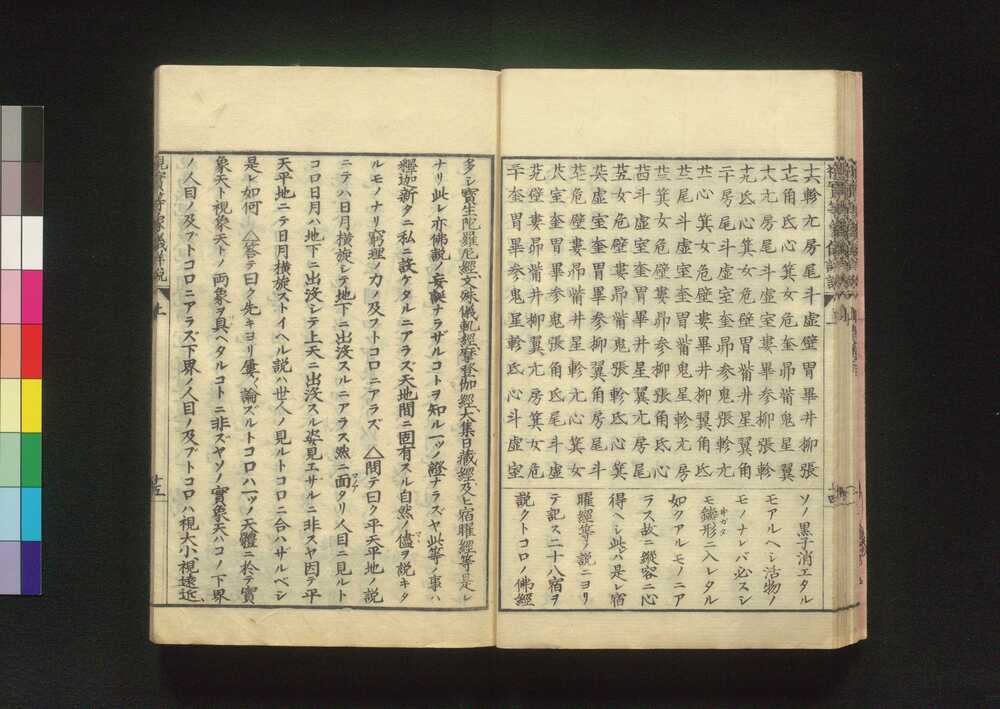 十六軫亢房尾斗虚壁胃畢井柳張
十七角氐心箕女危奎昴觜鬼星翼
十八亢房尾斗虚室婁畢参柳張軫
十九氐心箕女危壁胃觜井星翼角
二十房尾斗虚室奎昴参鬼張軫亢
廿一心箕女危壁婁畢井柳翼角氐
廿二尾斗虚室奎胃觜鬼星軫亢房
廿三箕女危壁婁昴参柳張角氐心
廿四斗虚室奎胃畢井星翼亢房尾
廿五女危壁婁昴觜鬼張軫氐心箕
廿六虚室奎胃畢参柳翼角房尾斗
廿七危壁婁昴觜井星軫亢心箕女
廿八室奎胃畢参鬼張角氐尾斗虚
廿九壁婁昴觜井柳翼亢房箕女危
三十奎胃畢参鬼星軫氐心斗虚室
ソノ黒子消エタル
モアルヘシ活物ノ
モノナレバ必スシ
モ鑄形ニ入レタル
如クアルモノニア
ラス故ニ縱容ニ心
得ヘシ此ハ是レ宿
曜經等ノ説ニヨリ
テ記ス二十八宿ヲ
説クトコロノ佛經
多シ寳生陀羅尼經文殊儀軌經摩登伽經大集日藏經及ヒ宿曜經等是レ
ナリ此レ亦佛説ノ妄誕ナラザルコトヲ知ル一ツノ證ナラズヤ此等ノ事ハ
釋迦新タニ私ニ設ケタルニアラズ天地間ニ固有スル自然ノ儘ヲ説キタ
ルモノナリ窮理ノ力ノ及フトコロニアラズ △問テ曰ク平天平地ノ説
ニテハ日月横旋シテ地下ニ出没スルニアラス然ニ面タリ人目ニ見ルト
コロ日月ハ地下ニ出没シテ上天ニ出没スル姿見エサルニ非スヤ因テ平
天平地ニテ日月横旋ストイヘル説ハ世人ノ見ルトコロニ合ハサルベシ
是レ如何 △答テ曰ク先キヨリ屢〻論ズルトコロハ一ツノ天體ニ於テ實
象天ト視象天トノ両象ヲ具ヘタルコトニ非ズヤソノ實象天ハコノ下界
ノ人目ノ及フトコロニアラズ下界ノ人目ノ及ブトコロハ視大小視遠近
視實等象儀詳説 上
十五